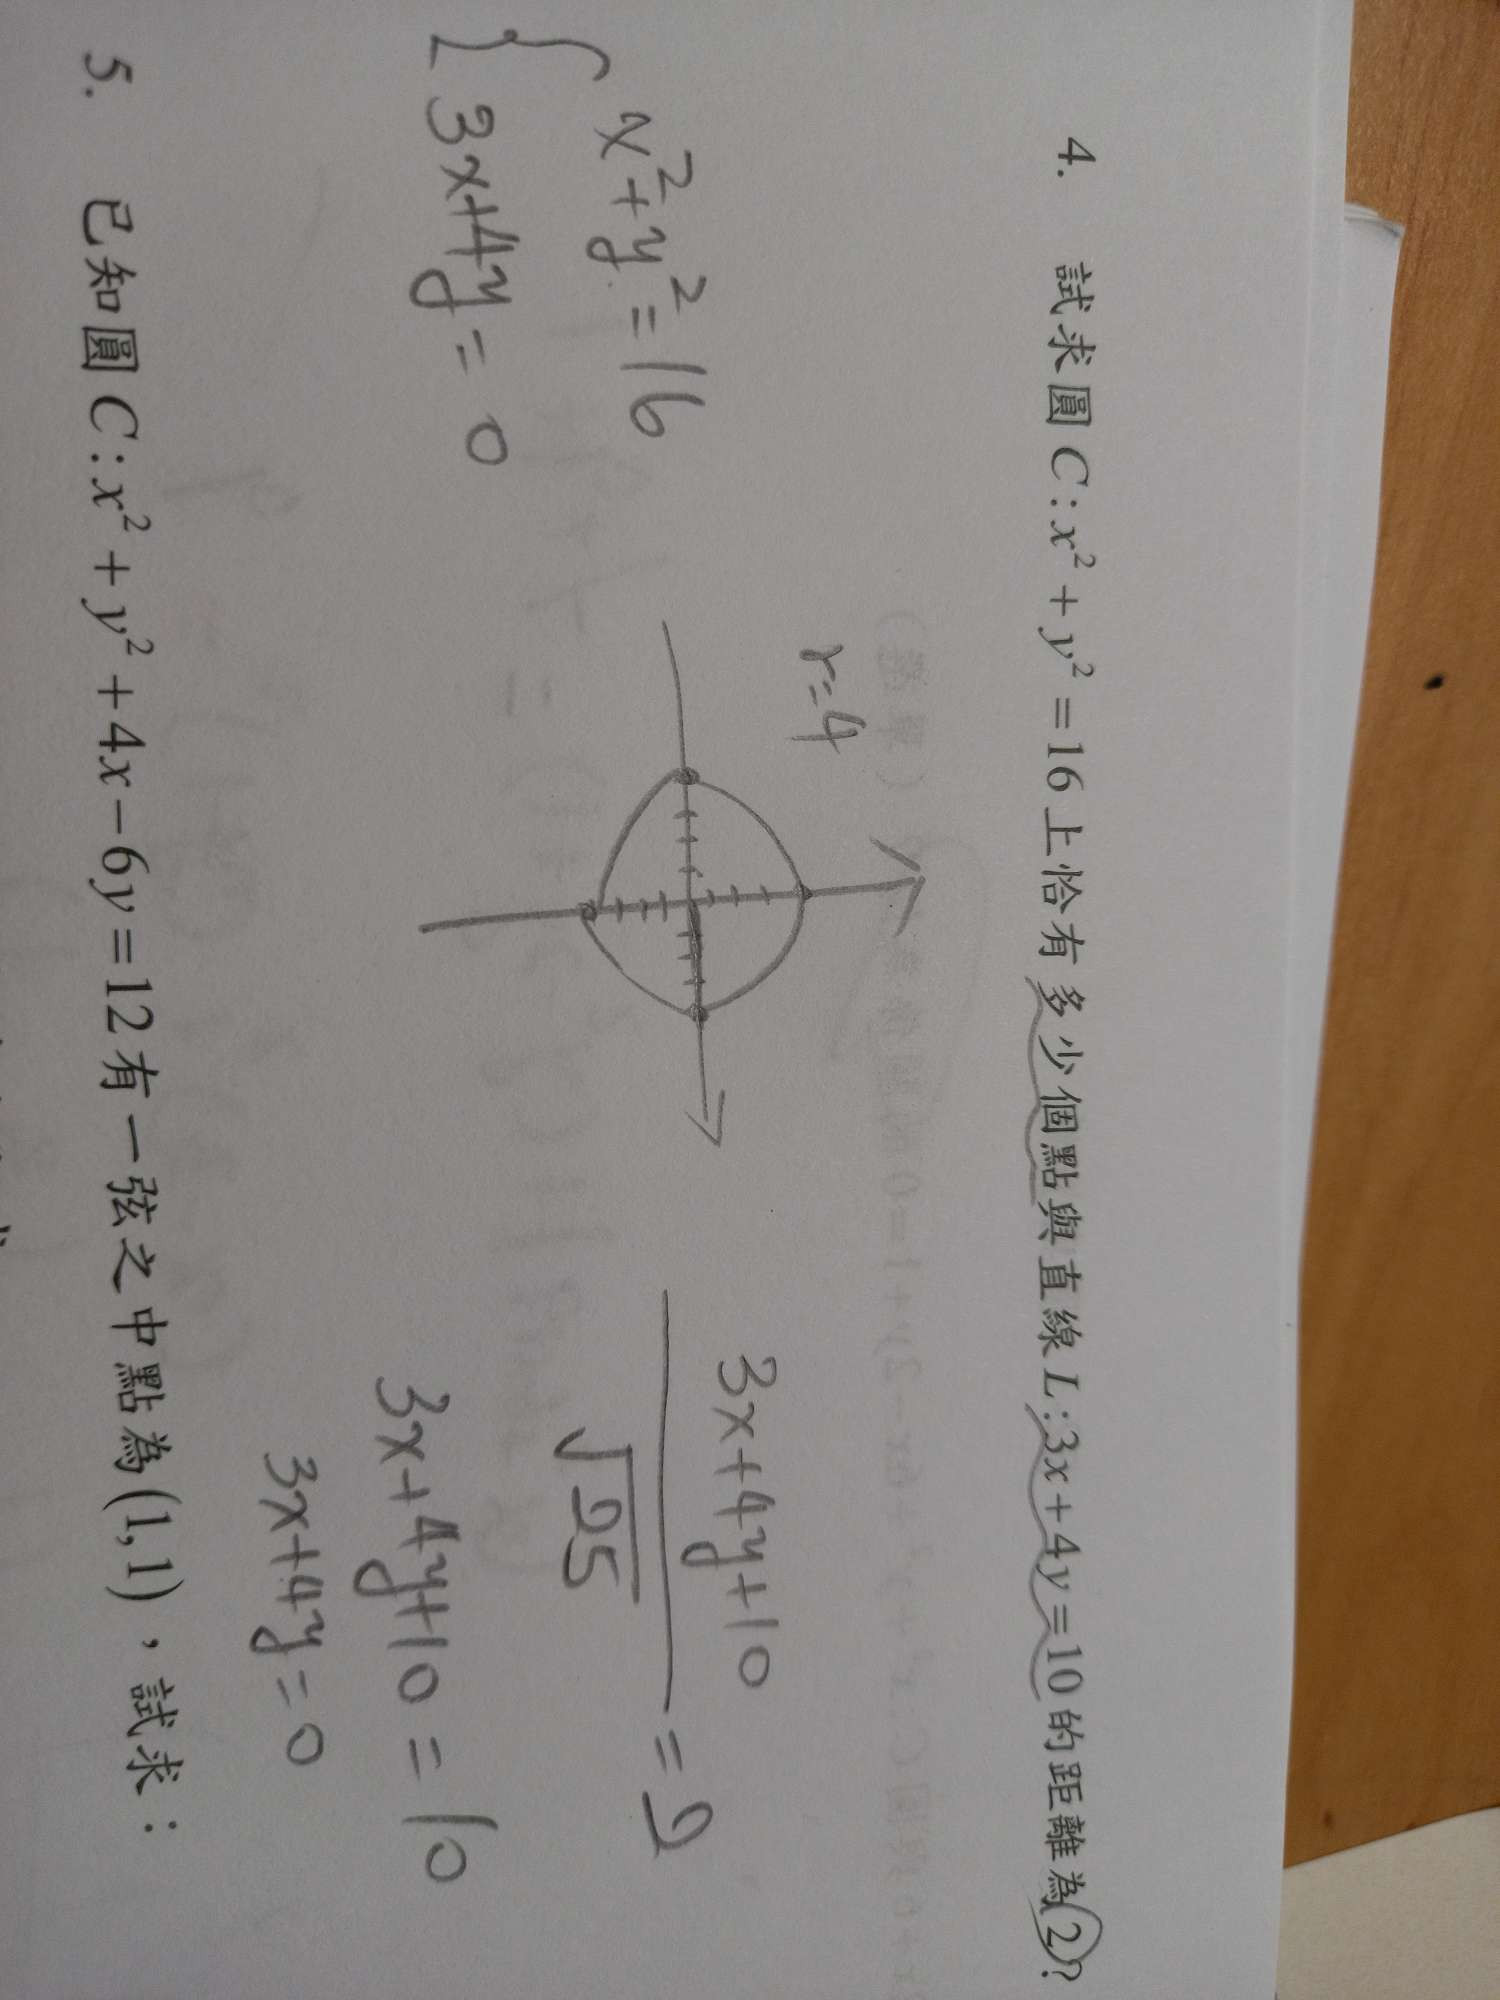 4. 試求圓 C : x² + y² = 16 上恰有多少個點與直線 L : 3x + 4y = 10 的距離為 2?
r=4
x²+y²=16
3x+4y=0
3x+4y+10
√25
=2
3x+4y+10=10
3x+4y=0
5. 已知圓 C : x² + y² + 4x − 6y = 12 有一弦之中點為 (1, 1)，試求：